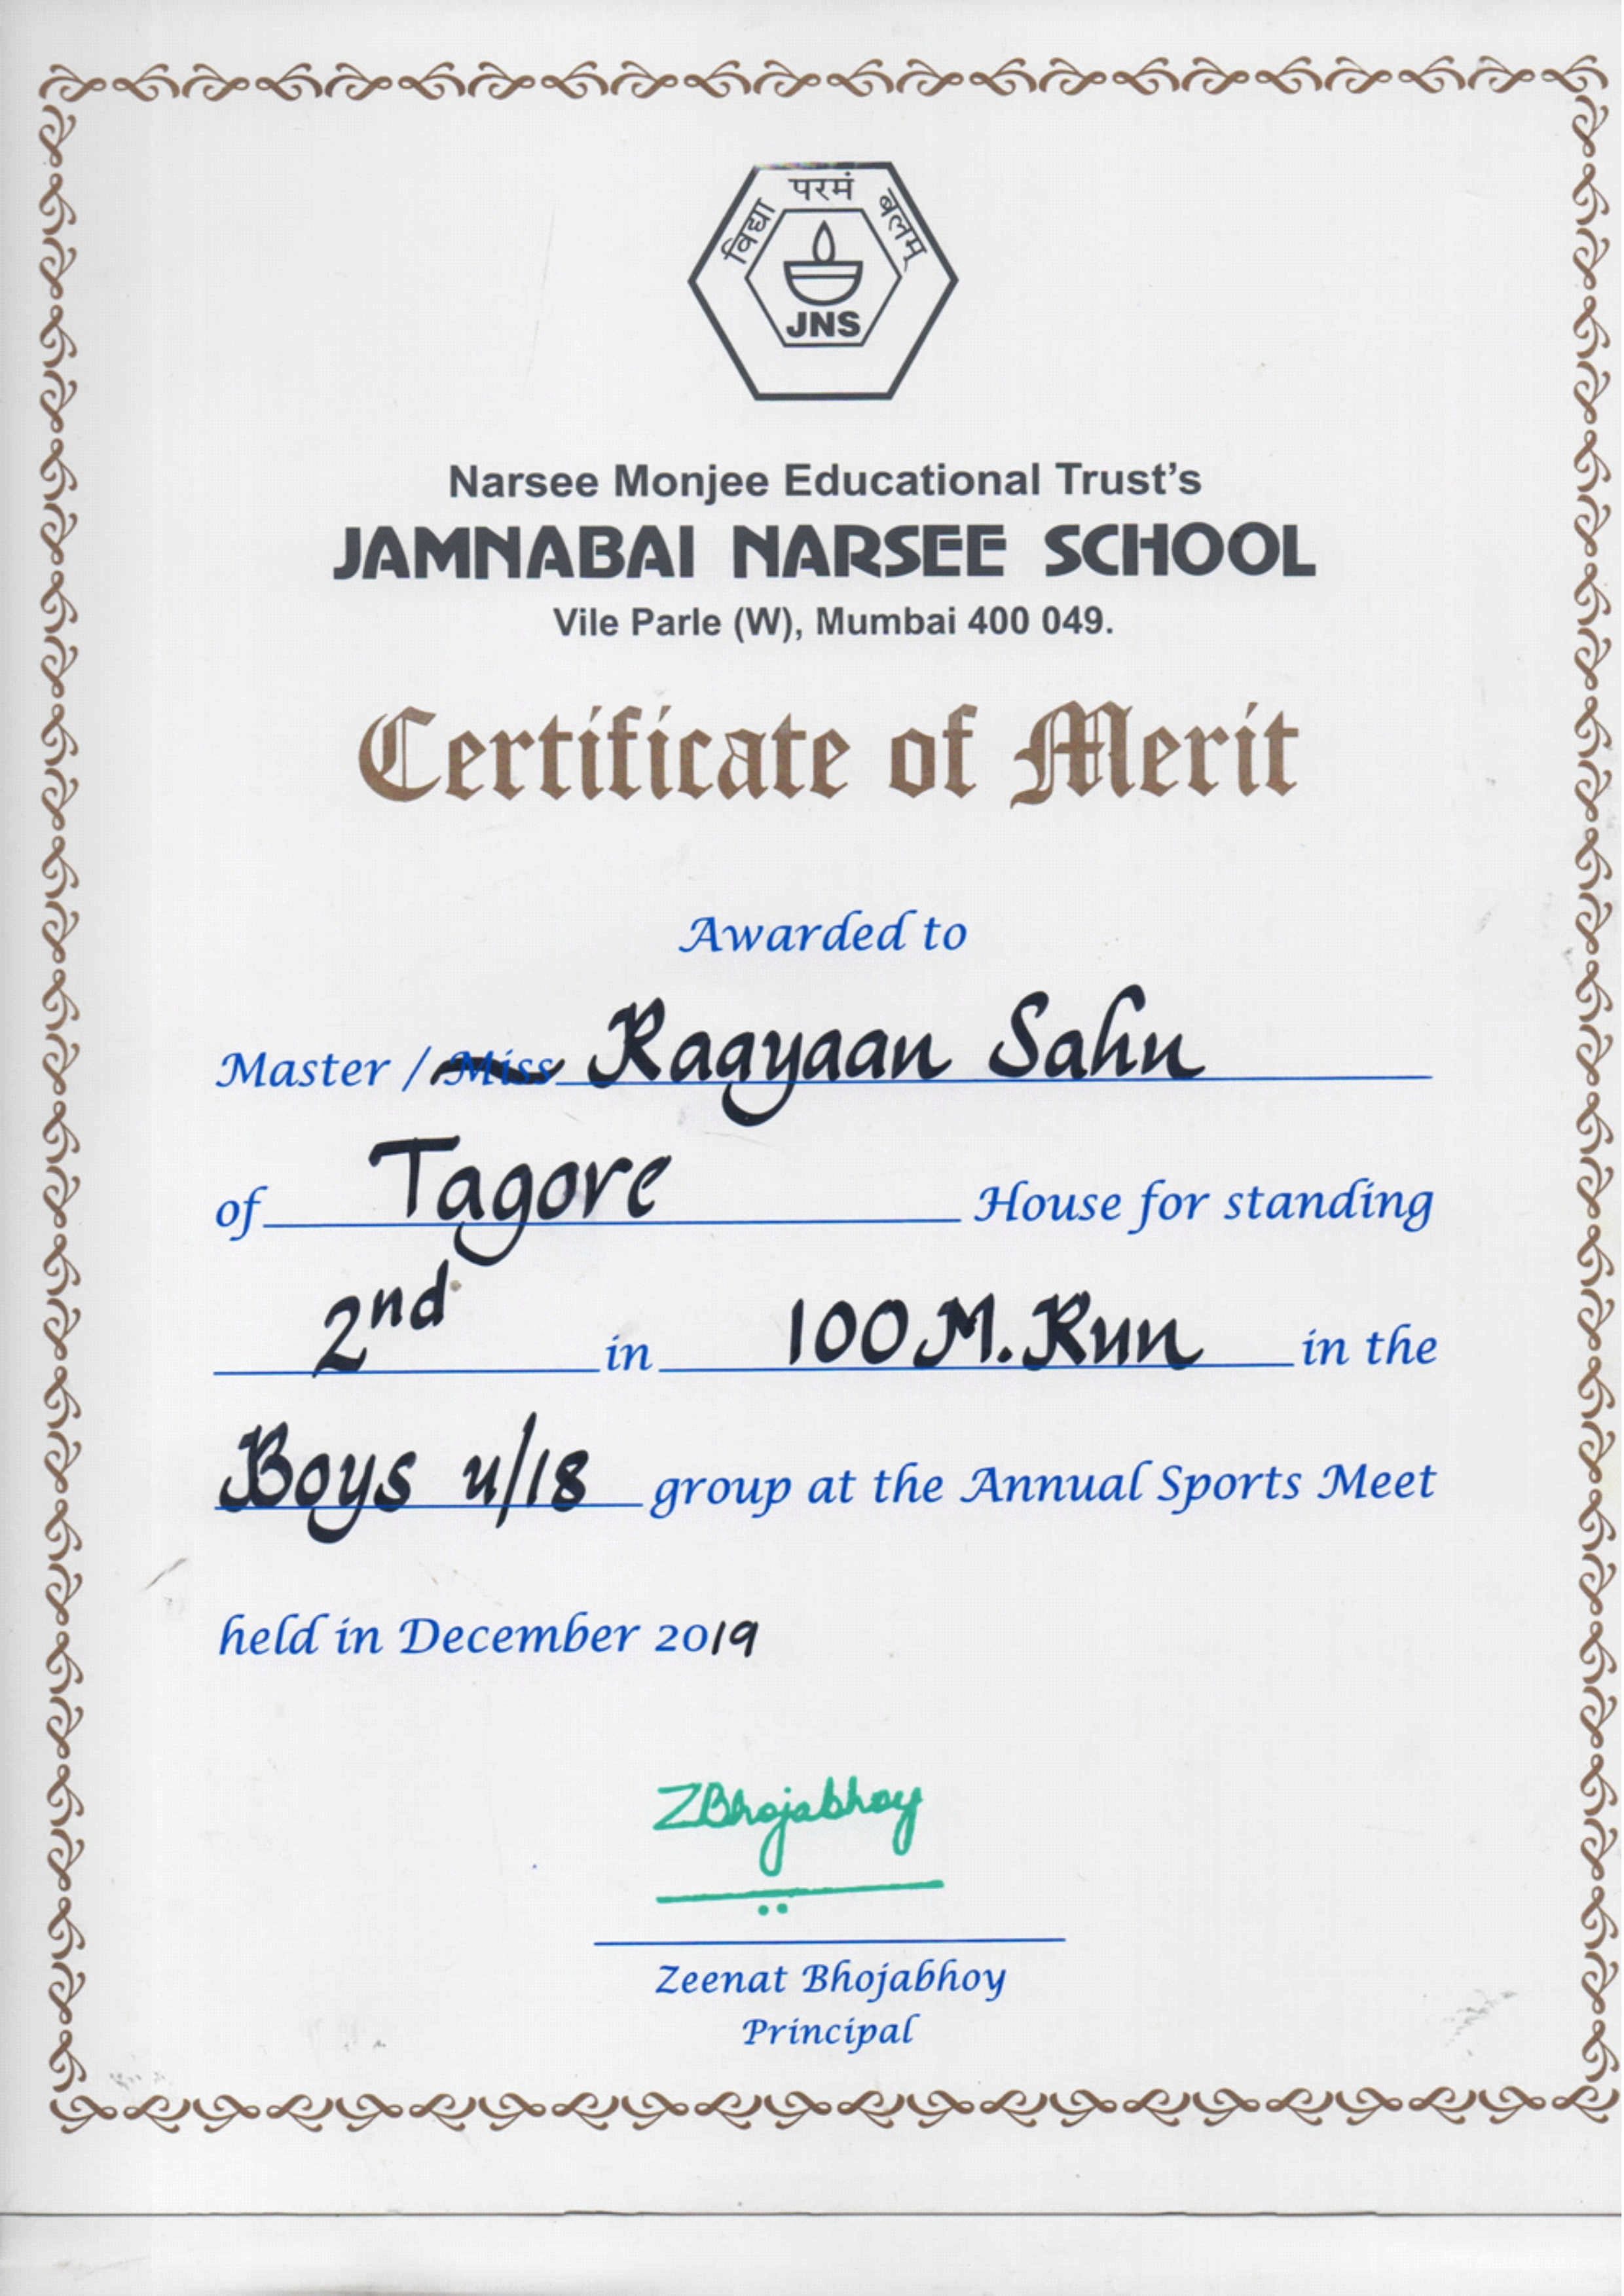 विद्या परमं बलम्
JNS
Narsee Monjee Educational Trust's
JAMNABAI NARSEE SCHOOL
Vile Parle (W), Mumbai 400 049.
Certificate of Merit
Awarded to
Master / Miss Ragyaan Sahu
of Tagore House for standing
2nd in 100 M. Run in the
Boys u/18 group at the Annual Sports Meet
held in December 2019
ZBhojabhoy
Zeenat Bhojabhoy
Principal